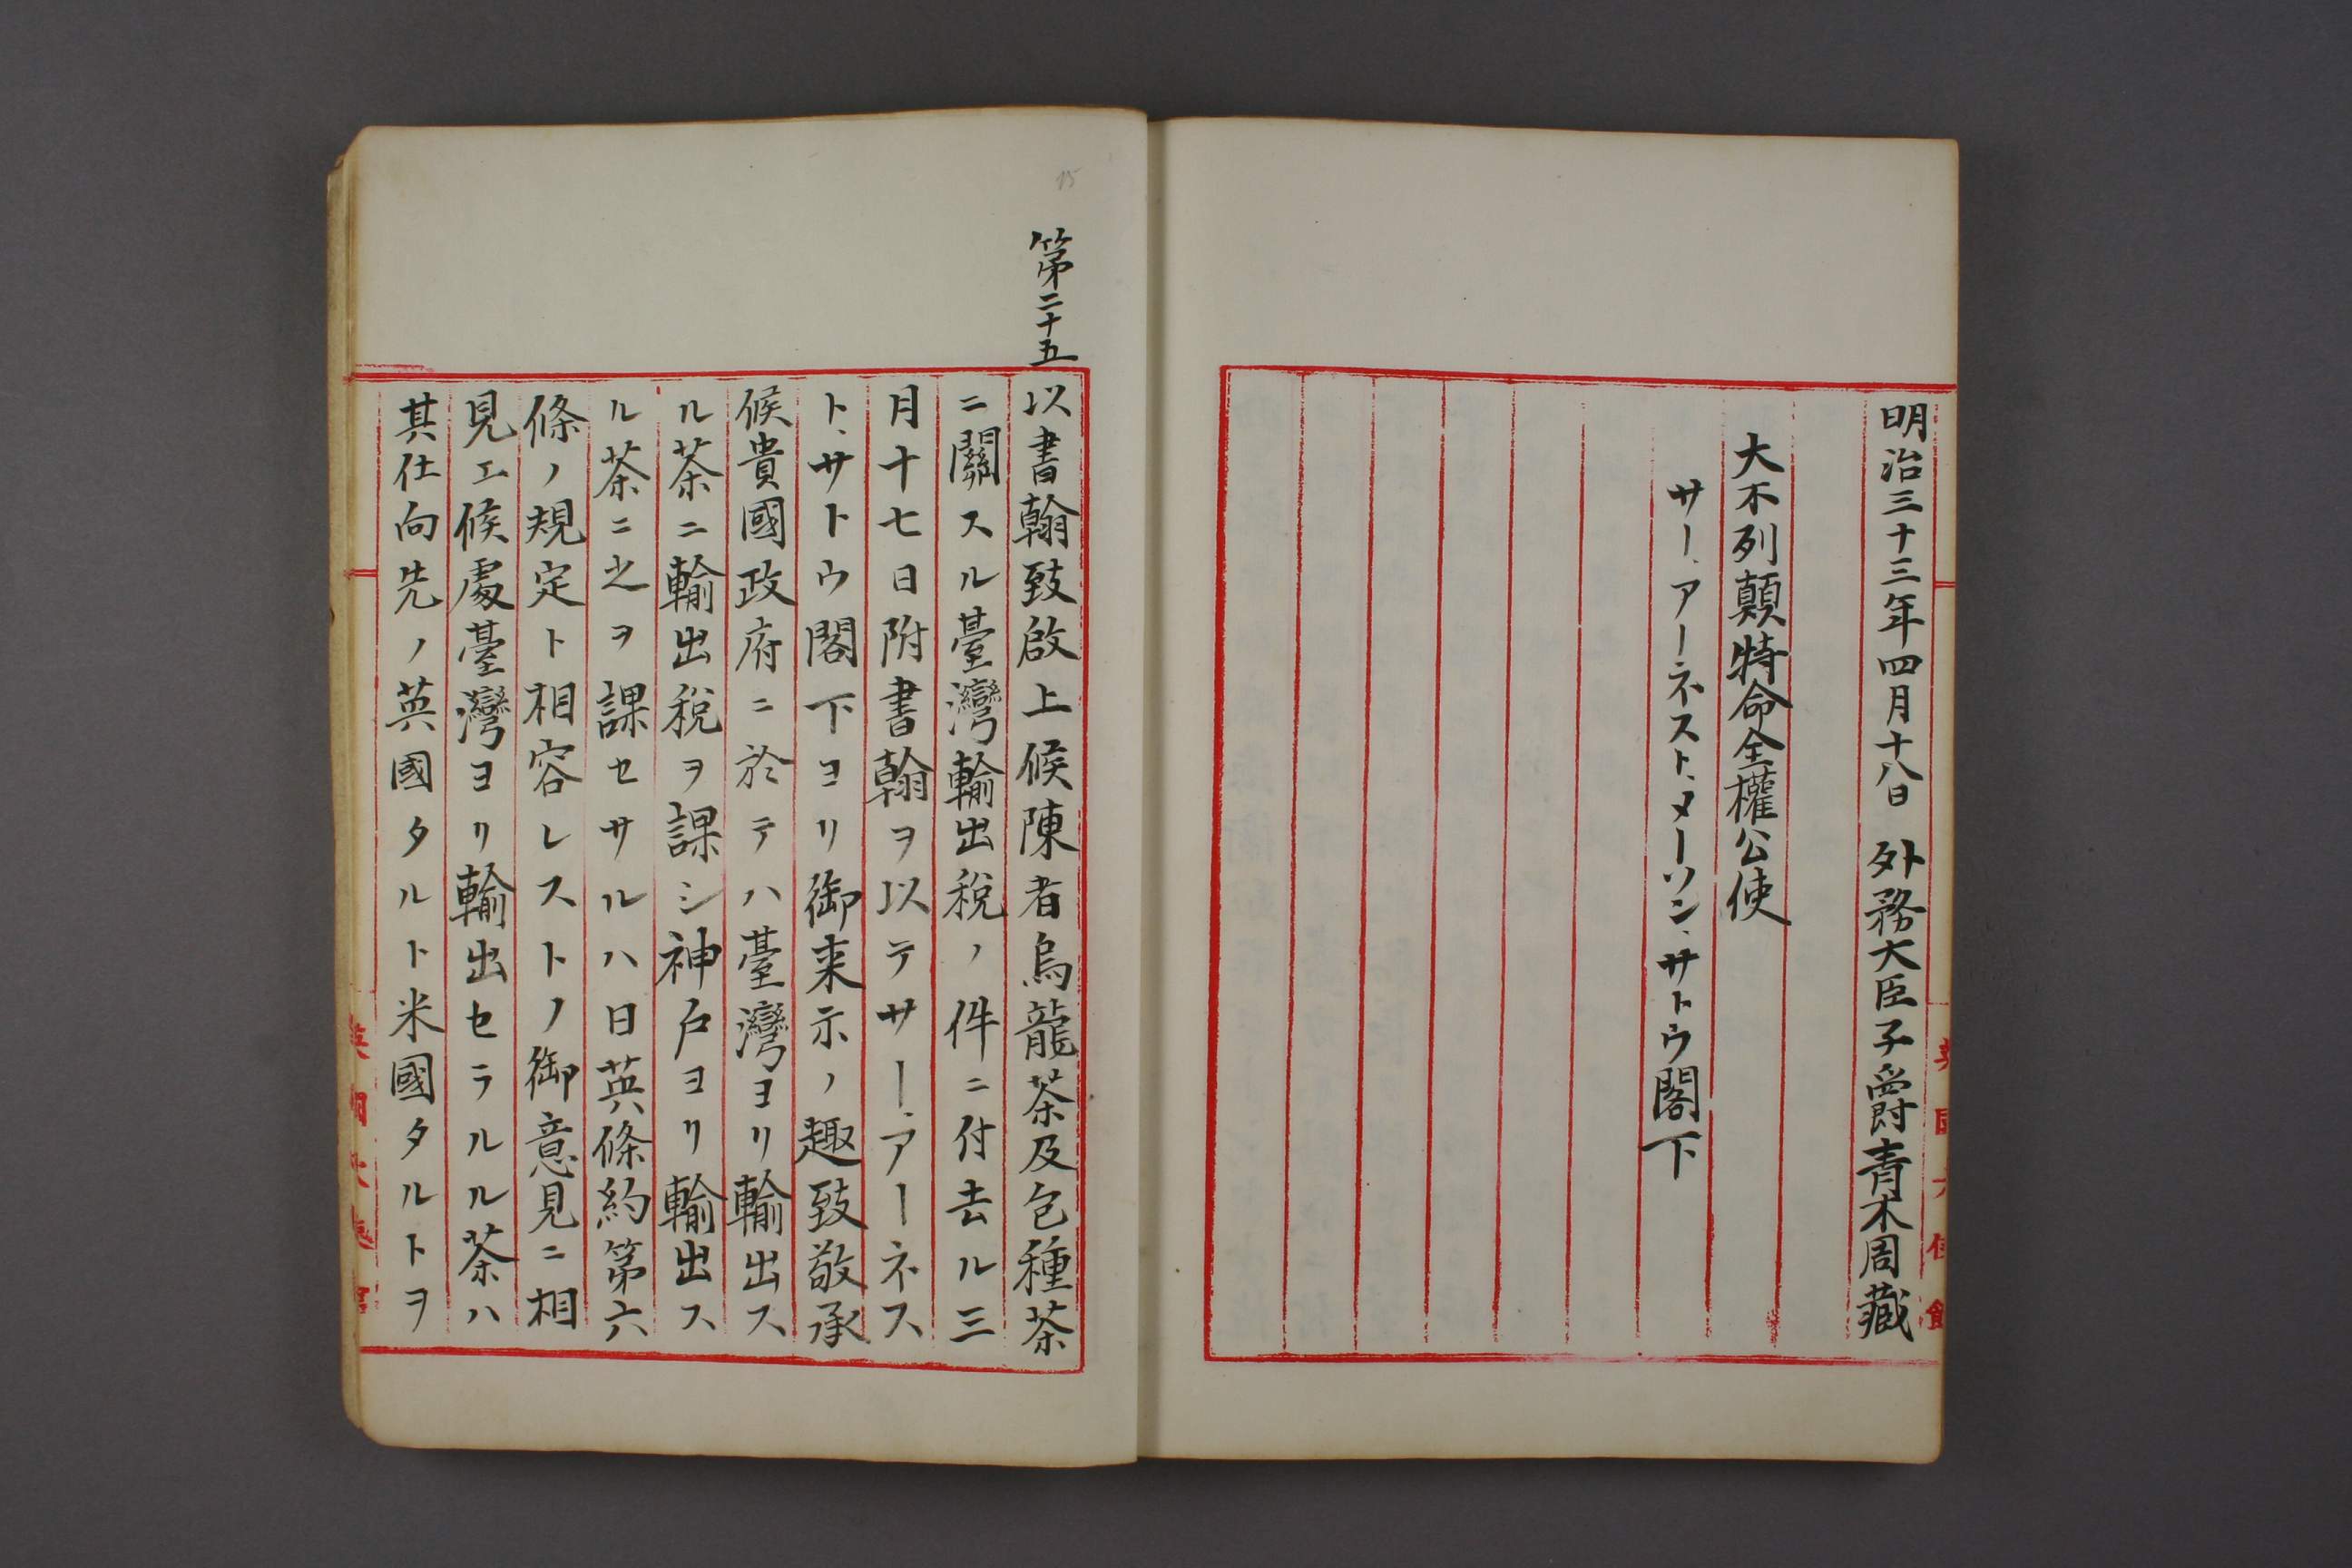 明治三十三年四月十八日 外務大臣子爵青木周藏
大不列顛特命全權公使
サー、アーネスト、メーソン、サトウ閣下
第二十五
以書翰致啟上候陳者烏龍茶及包種茶
ニ關スル臺灣輸出稅ノ件ニ付去ル三
月十七日附書翰ヲ以テサー、アーネス
ト、サトウ閣下ヨリ御来示ノ趣致敬承
候貴國政府ニ於テハ臺灣ヨリ輸出ス
ル茶ニ輸出稅ヲ課シ神戸ヨリ輸出ス
ル茶ニ之ヲ課セサルハ日英條約第六
條ノ規定ト相容レストノ御意見ニ相
見エ候處臺灣ヨリ輸出セラルル茶ハ
其仕向先ノ英國タルト米國タルトヲ